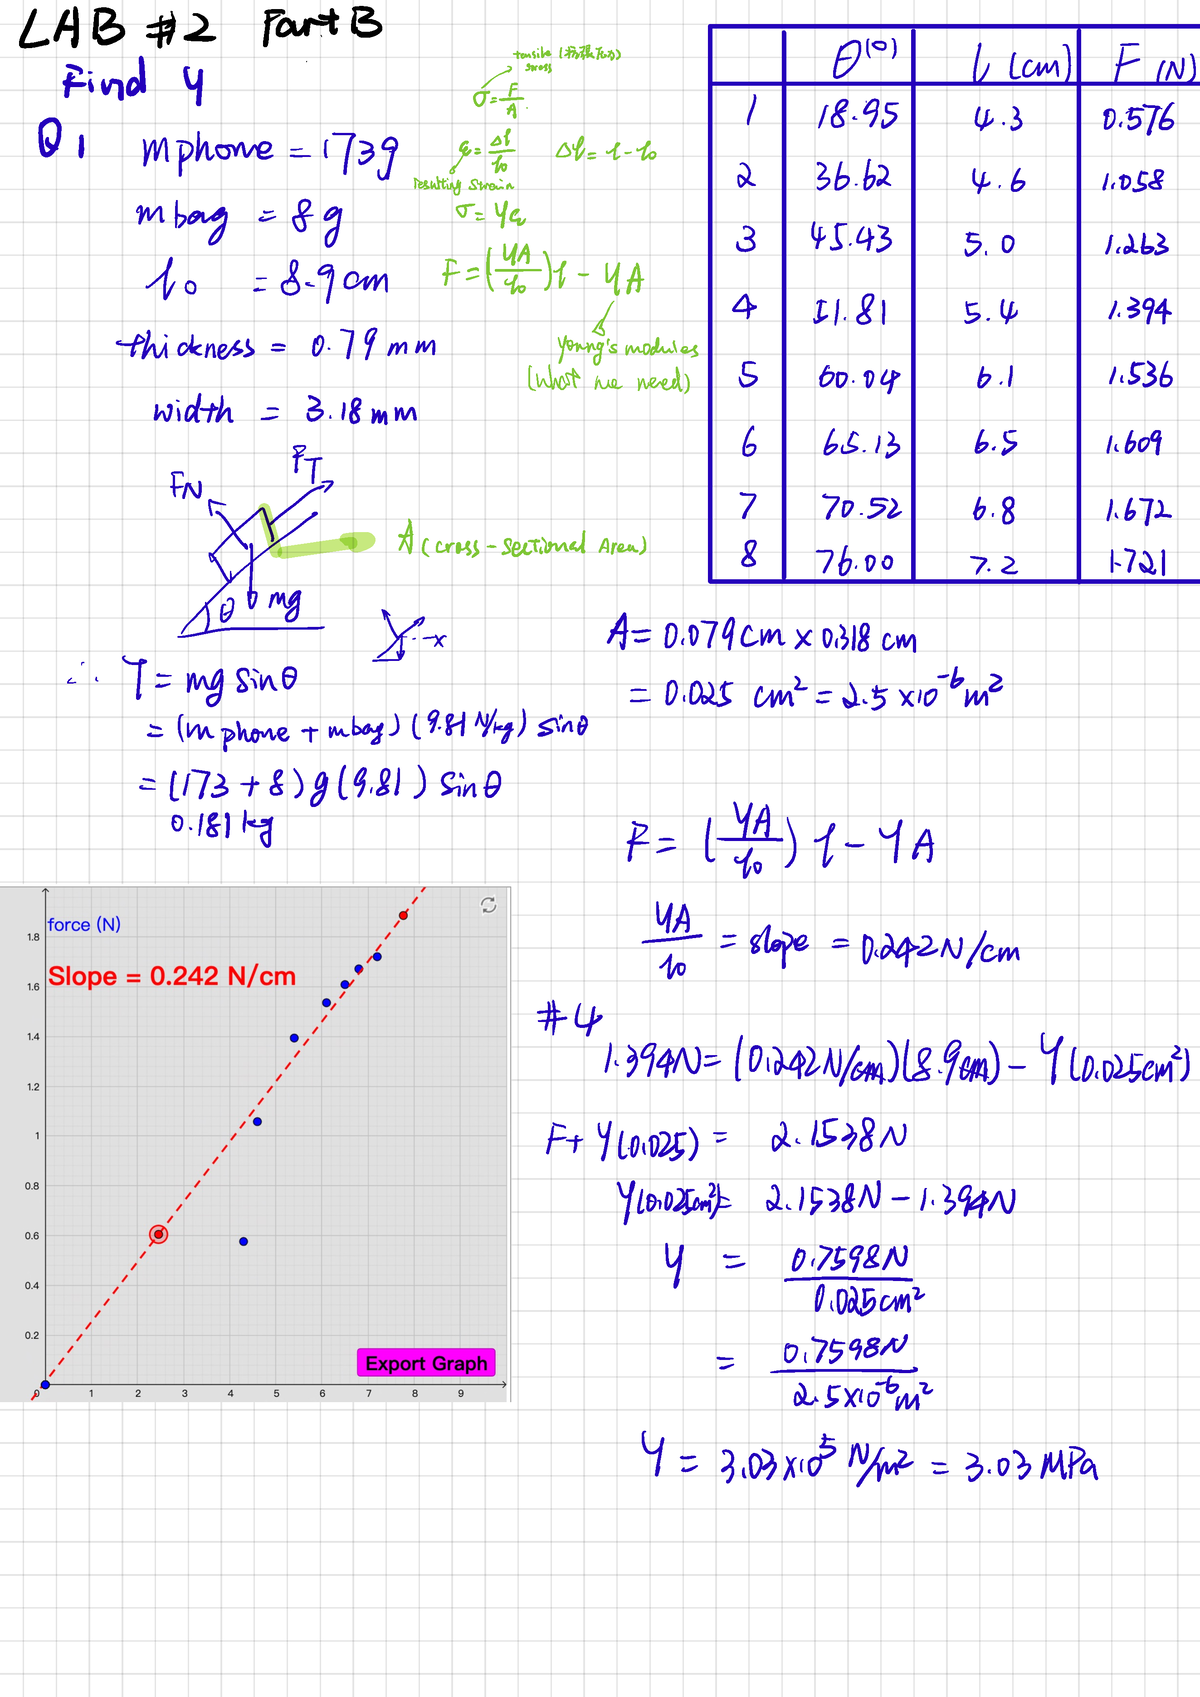 LAB #2 Part B
Find Y
Q1 mphone = 173g
mbag = 8g
l₀ = 8.9cm
thickness = 0.79mm
width = 3.18mm
tensile
stress
σ = F/A
ε = Δl/l₀ Δl = l - l₀
resulting strain
σ = Yε
F = (YA/l₀)l - YA
Young's modules
(what we need)
θ(°) l (cm) F (N)
1 18.95 4.3 0.576
2 36.62 4.6 1.058
3 45.43 5.0 1.263
4 51.81 5.4 1.394
5 60.04 6.1 1.536
6 65.13 6.5 1.609
7 70.52 6.8 1.672
8 76.00 7.2 1.721
FN
FT
A (cross-sectional Area)
θ
mg
x
∴ T = mg sinθ
= (mphone + mbag)(9.81 N/kg) sinθ
= (173 + 8)g(9.81) sinθ
0.181kg
A = 0.079cm × 0.318 cm
= 0.025 cm² = 2.5 × 10⁻⁶ m²
F = (YA/l₀) l - YA
YA/l₀ = slope = 0.242 N/cm
#4
1.394N = (0.242N/cm)(8.9cm) - Y(0.025cm²)
F + Y(0.025) = 2.1538N
Y(0.025cm²) = 2.1538N - 1.394N
Y = 0.7598N/0.025cm²
= 0.7598N/2.5×10⁻⁶m²
Y = 3.03×10⁵ N/m² = 3.03 MPa
force (N)
Slope = 0.242 N/cm
1.8
1.6
1.4
1.2
1
0.8
0.6
0.4
0.2
Export Graph
0 1 2 3 4 5 6 7 8 9